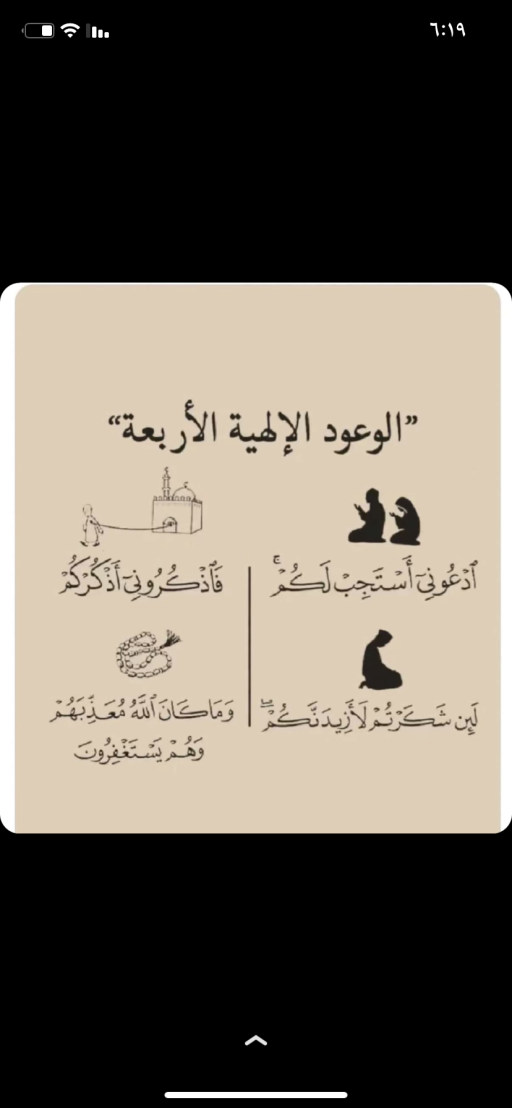 ٦:١٩
”الوعود الإلهية الأربعة“
ٱدْعُونِىٓ أَسْتَجِبْ لَكُمْ ۚ
فَٱذْكُرُونِىٓ أَذْكُرْكُمْ
لَئِن شَكَرْتُمْ لَأَزِيدَنَّكُمْ ۖ
وَمَا كَانَ ٱللَّهُ مُعَذِّبَهُمْ
وَهُمْ يَسْتَغْفِرُونَ